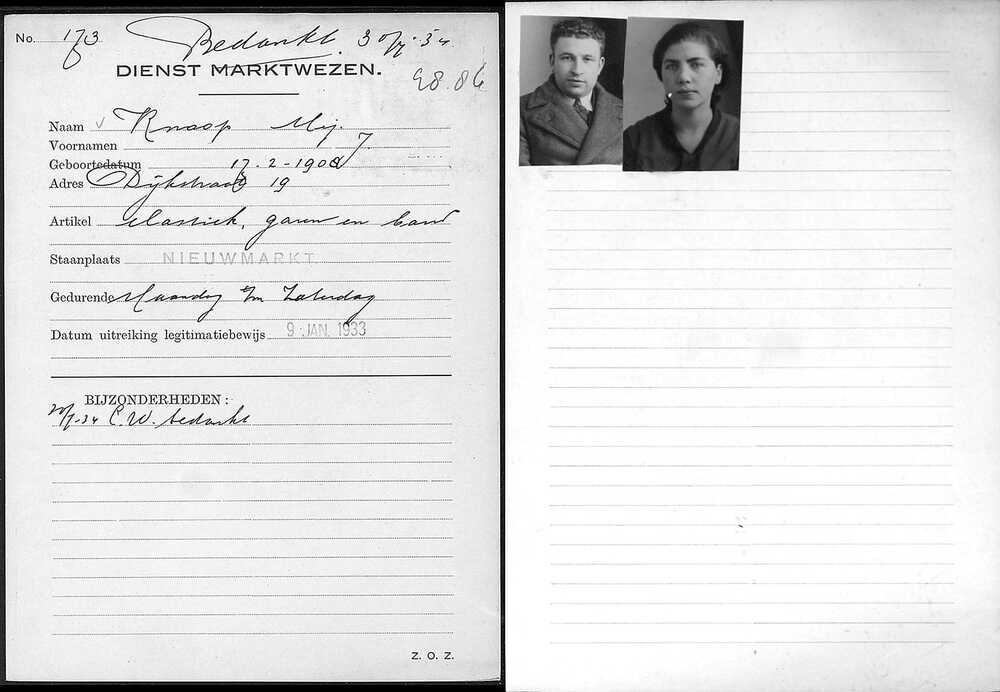 No. 173 Bedankt. 30/7-34
DIENST MARKTWEZEN.
98.06
Naam Knoop Mij.
Voornamen J.
Geboortedatum 17-2-1908
Adres Dijkstraat 19
Artikel elastiek, garen en band
Staanplaats NIEUWMARKT
Gedurende Maandag t/m Zaterdag
Datum uitreiking legitimatiebewijs 9 JAN. 1933
BIJZONDERHEDEN :
30/7-34 C.W. bedankt
Z. O. Z.